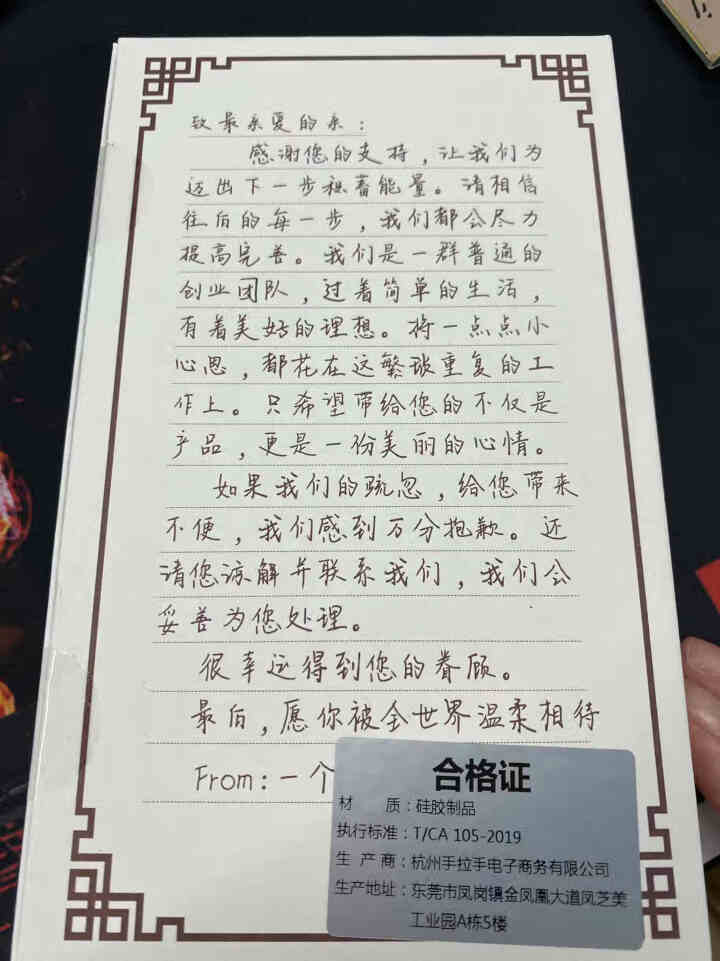 致最亲爱的亲：
感谢您的支持，让我们为
迈出下一步积蓄能量。请相信
往后的每一步，我们都会尽力
提高完善。我们是一群普通的
创业团队，过着简单的生活，
有着美好的理想。将一点点小
心思，都花在这繁琐重复的工
作上。只希望带给您的不仅是
产品，更是一份美丽的心情。
如果我们的疏忽，给您带来
不便，我们感到万分抱歉。还
请您谅解并联系我们，我们会
妥善为您处理。
很幸运得到您的眷顾。
最后，愿你被全世界温柔相待
From：一个
合格证
材 质：硅胶制品
执行标准：T/CA 105-2019
生 产 商：杭州手拉手电子商务有限公司
生产地址：东莞市凤岗镇金凤凰大道凤芝美
工业园A栋5楼